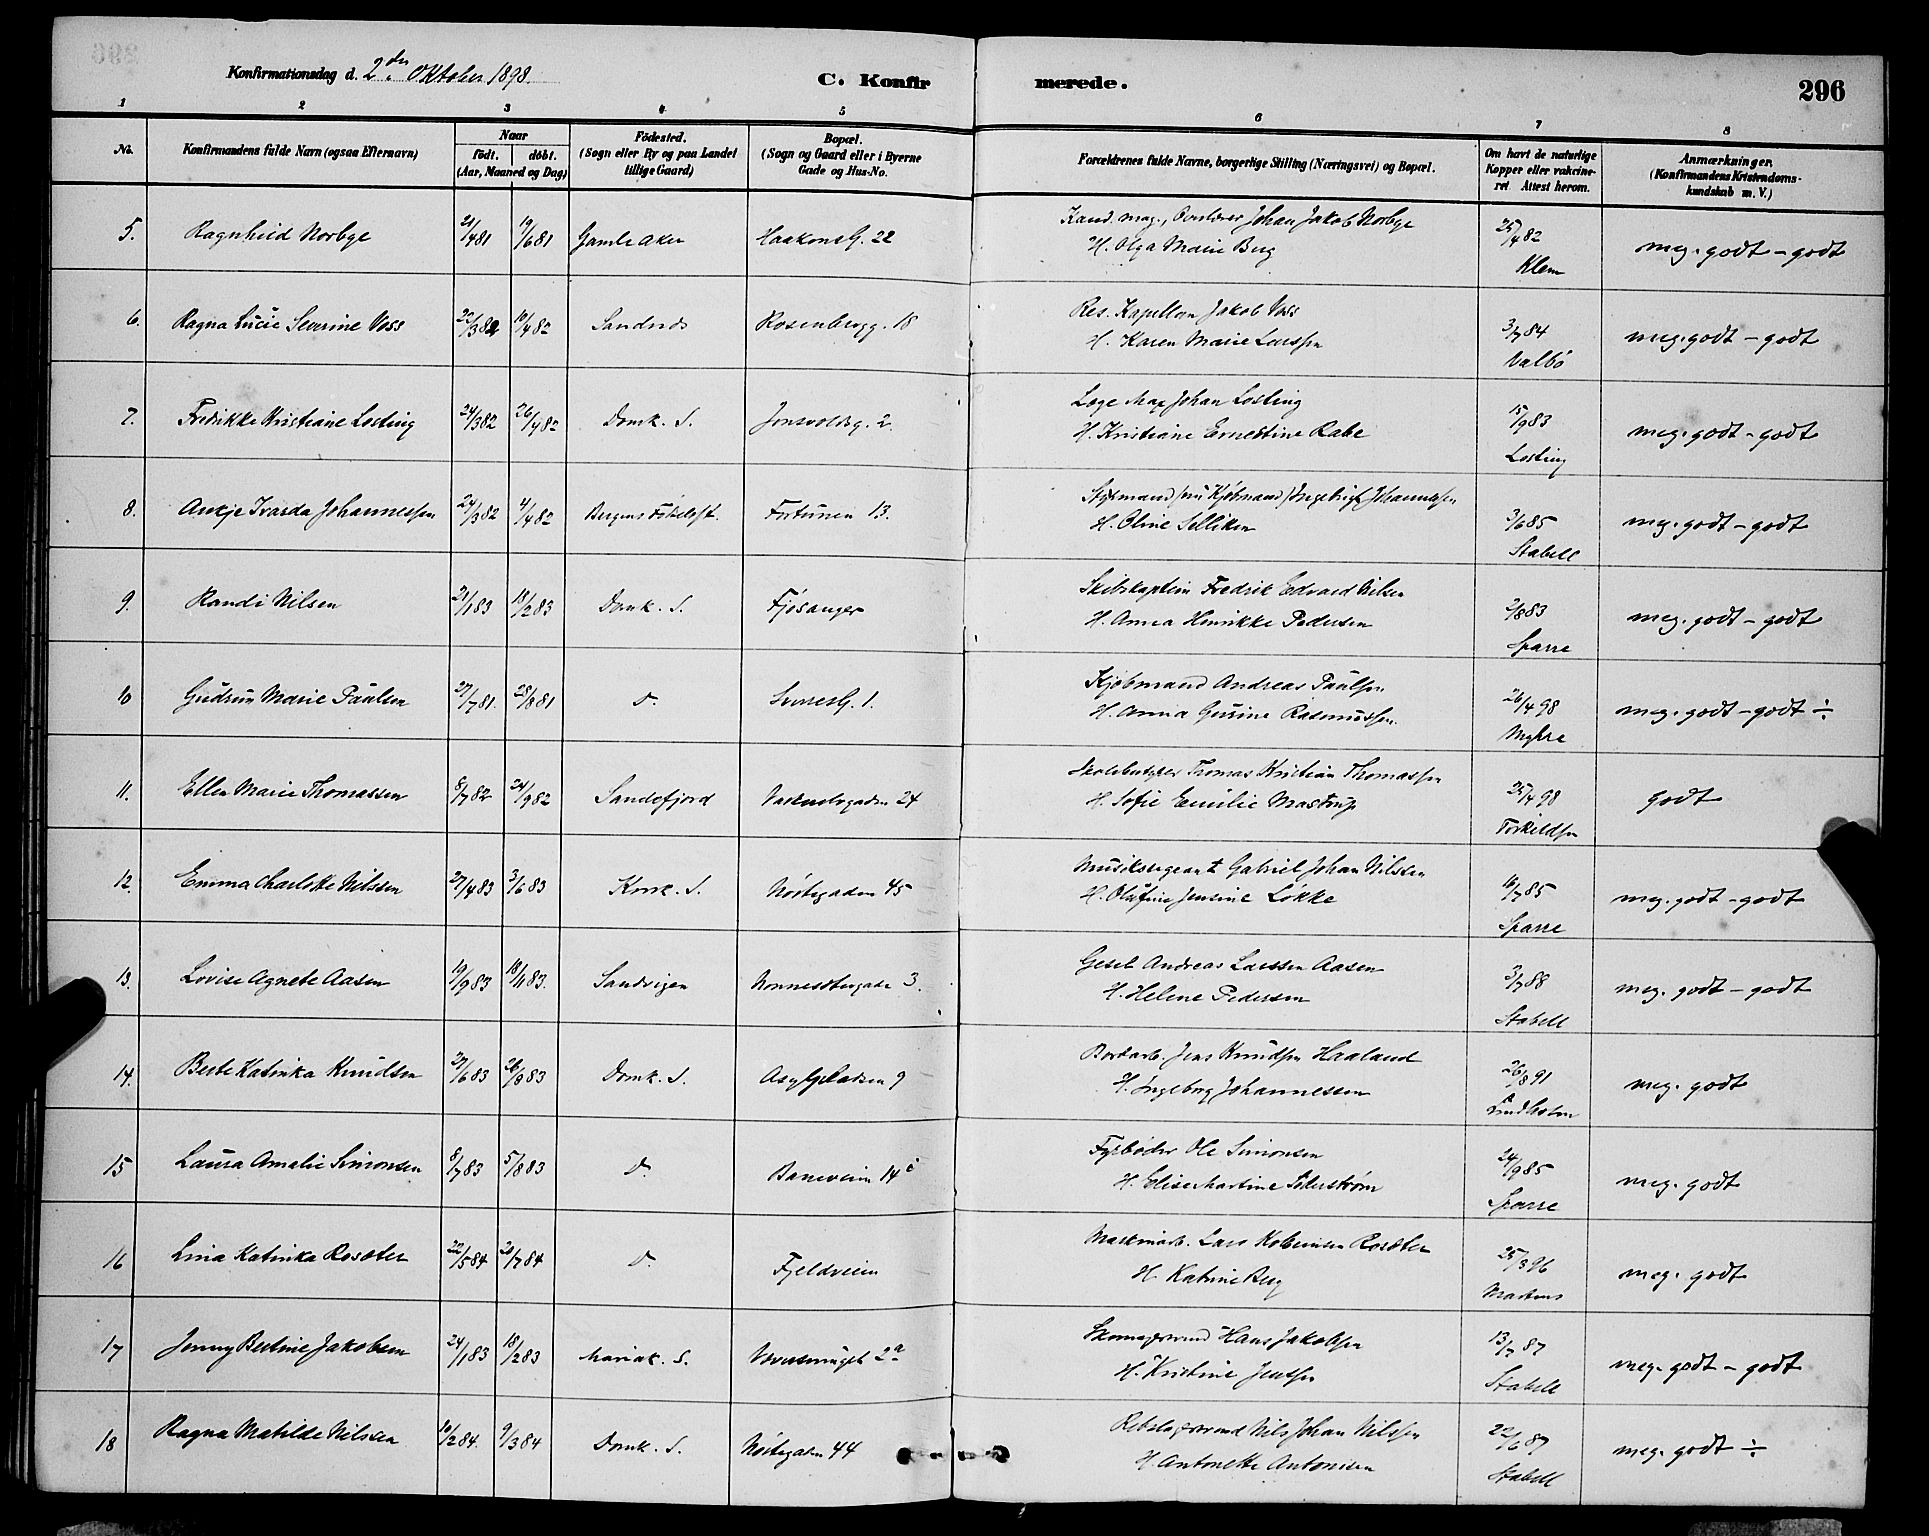 Konfirmationsdag d. 2den Oktober 1898.
C. Konfir merede.
296
1 2 3 4 5 6 7 8
No.
Konfirmandens fulde Navn (ogsaa Efternavn)
Naar
födt. döbt.
(Aar, Maaned og Dag)
Födested.
(Sogn eller By og paa Landet
tillige Gaard)
Bopæl.
(Sogn og Gaard eller i Byerne
Gade og Hus-No.
Forældrenes fulde Navne, borgerlige Stilling (Næringsvei) og Bopæl.
Om havt de naturlige
Kopper eller vakcine-
ret. Attest herom.
Anmærkninger.
(Konfirmandens Kristendoms-
kundskab m. V.)
5. Ragnhild Norbye 21/4 81 19/6 81 Gamle Aker Haakonsg. 22 Kand. mag., Overlærer Johan Jakob Norbye 25/4 82 meg. godt - godt
H. Olga Marie Berg Klem
6. Ragna Lucie Severine Voss 22/3 82 10/4 82 Sandnes Rosenbergg. 18 Res. Kapellan Jakob Voss 3/7 84 meg. godt - godt
H. Karen Marie Larssen Valbö
7. Fredrikke Kristiane Losting 24/3 82 26/4 82 Domk. S. Jonsvoldsg. 2. Læge Max Johan Losting 15/9 83 meg. godt - godt
H. Kristiane Ernestine Rabe Losting
8. Antje Ivarda Johannessen 24/3 82 4/4 82 Bergens Födselsst. Fortunen 13. Styrmand (nu Kjøbmand) Ingebrigt Johannessen 3/6 85 meg. godt - godt
H. Oline Selliken Stabell
9. Randi Nilsen 21/1 83 18/2 83 Domk. S. Fjösanger Skibskaptein Fredrik Edvard Nilsen 2/8 83 meg. godt - godt
H. Anna Henrikke Pedersen Sparre
10 Gudrun Marie Paulsen 27/7 81. 28/8 81 do. Sverresg. 1. Kjøbmand Andreas Paulsen 26/4 98 meg. godt - godt ÷
H. Anna Gurine Rasmussen. Myhre
11. Ellen Marie Thomassen 8/7 82 24/9 82 Sandefjord Vaskerelvgaden 24 Skolebestyrer Thomas Kristian Thomassen 25/4 98 godt
H. Sofie Emilie Mastrup Torkildsen
12. Emma Charlotte Nilssen 27/4 83 3/6 83 Korsk. S. Nöstegaden 45 Musiksergeant Gabriel Johan Nilssen 16/7 85 meg. godt - godt
H. Olufine Jensine Lökke Sparre
13. Lovise Agnete Aasen 19/9 83 18/11 83. Sandvigen Nonnestergade 3. Gesel Andreas Larssen Aasen 3/7 88 meg. godt - godt
H. Helene Pedersen Stabell
14. Berte Katinka Knudsen 27/6 83 26/8 83 Domk. S. Asylpladsen 9 Bordarb. Jens Knudsen Haaland 26/8 91 meg. godt
H. Ingeborg Johannessen Lindholm
15 Laura Amalie Simonsen 8/7 83 5/8 83 do. Baneveien 14 Fyrböder Ole Simonsen 24/9 85 meg. godt
H. Elise Martine Söderström Sparre
16 Lina Katinka Rosæter 22/5 84 20/7 84 do. Fjeldveien Lars Rosæter 25/3 96 meg. godt
H. Katrine Berg Martens
17 Jenny Bertine Jakobsen 24/1 83 18/2 83 Mariak. S. 2a Hans Jakobsen 13/7 87 meg. godt - godt
H. Kristine Jenssen Stabell
18 Ragna Matilde Nilssen 10/2 84. 9/3 84 Domk. S. Nöstegaden 44 Rebslagersvend Nils Johan Nilssen 22/6 87 meg. godt ÷
H. Antonette Antonisen Stabell